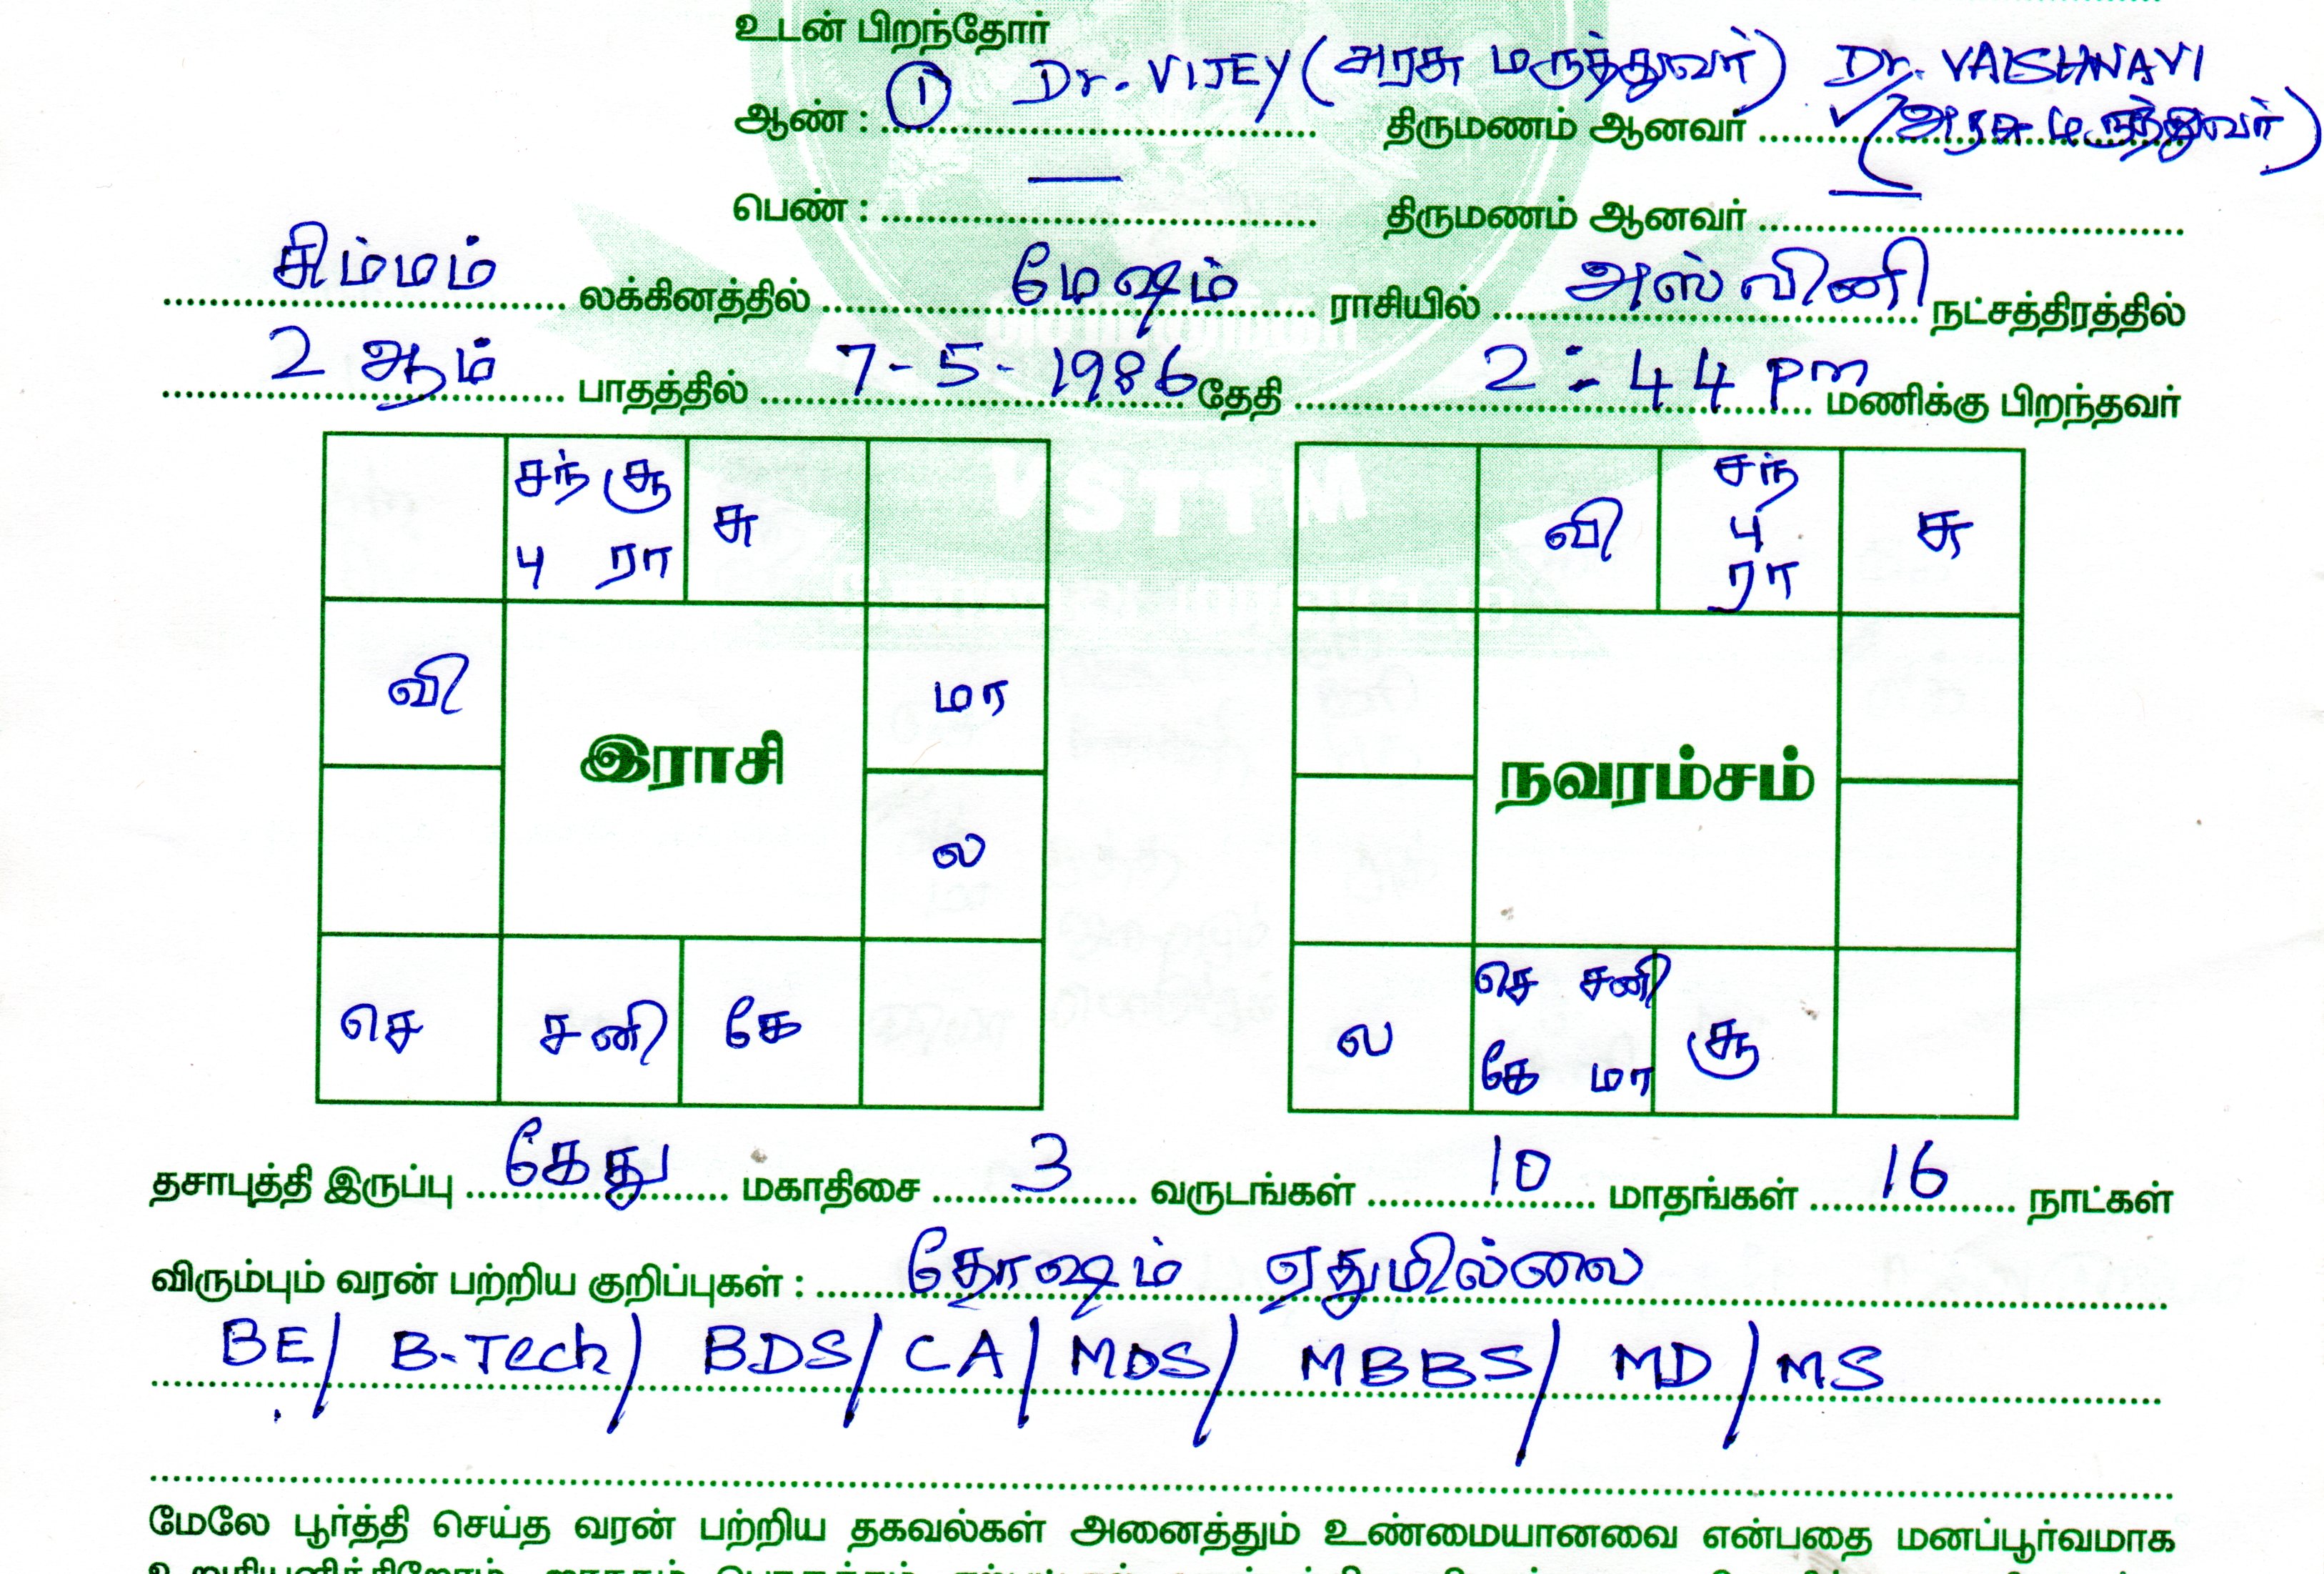 உடன் பிறந்தோர்
ஆண் : ① Dr. VIJEY (அரசு மருத்துவர்) திருமணம் ஆனவர் Dr. VAISHNAVI
(அரசு மருத்துவர்)
பெண் : — திருமணம் ஆனவர் —
சிம்மம் லக்கினத்தில் மேஷம் ராசியில் அஸ்வினி நட்சத்திரத்தில்
2 ஆம் பாதத்தில் 7-5-1986 தேதி 2:44 pm மணிக்கு பிறந்தவர்
சந் சூ
பு ரா
சு
வி
மா
இராசி
ல
செ சனி கே
வி
சந்
பு
ரா
சு
நவரம்சம்
ல
செ சனி
கே மா
சூ
தசாபுத்தி இருப்பு கேது மகாதிசை 3 வருடங்கள் 10 மாதங்கள் 16 நாட்கள்
விரும்பும் வரன் பற்றிய குறிப்புகள் : தோஷம் ஏதுமில்லை
BE/ B.Tech/ BDS/ CA/ MDS/ MBBS/ MD/ MS
மேலே பூர்த்தி செய்த வரன் பற்றிய தகவல்கள் அனைத்தும் உண்மையானவை என்பதை மனப்பூர்வமாக
VSTTM